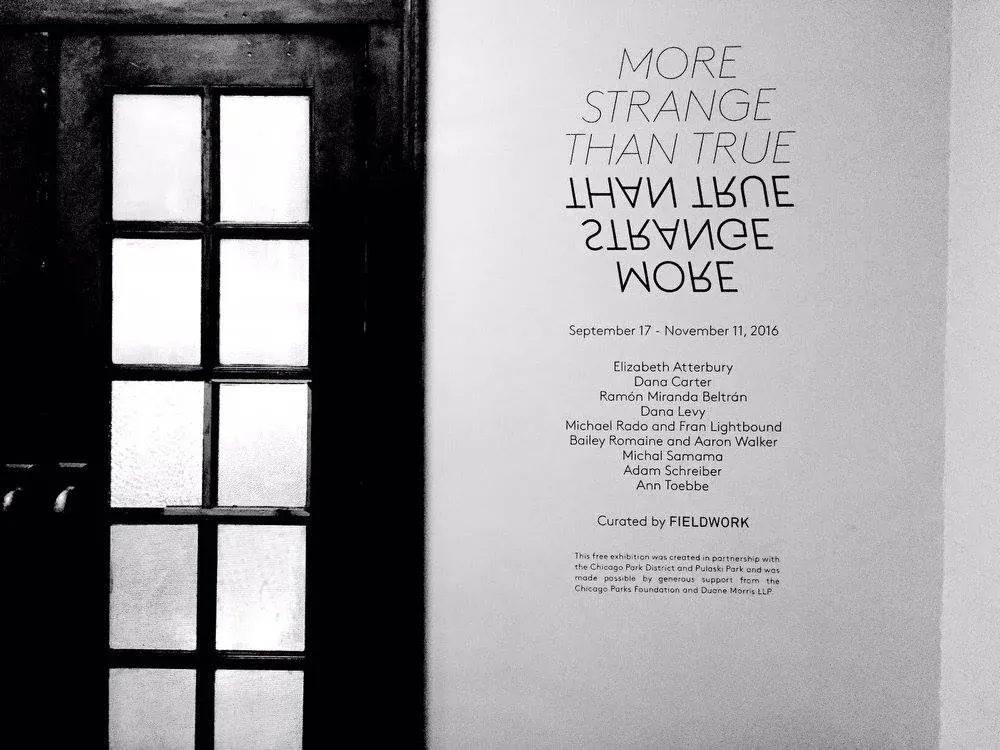 MORE
STRANGE
THAN TRUE
THAN TRUE
STRANGE
MORE
September 17 - November 11, 2016
Elizabeth Atterbury
Dana Carter
Ramón Miranda Beltrán
Dana Levy
Michael Rado and Fran Lightbound
Bailey Romaine and Aaron Walker
Michal Samama
Adam Schreiber
Ann Toebbe
Curated by FIELDWORK
This free exhibition was created in partnership with
the Chicago Park District and Pulaski Park and was
made possible by generous support from the
Chicago Parks Foundation and Duane Morris LLP.